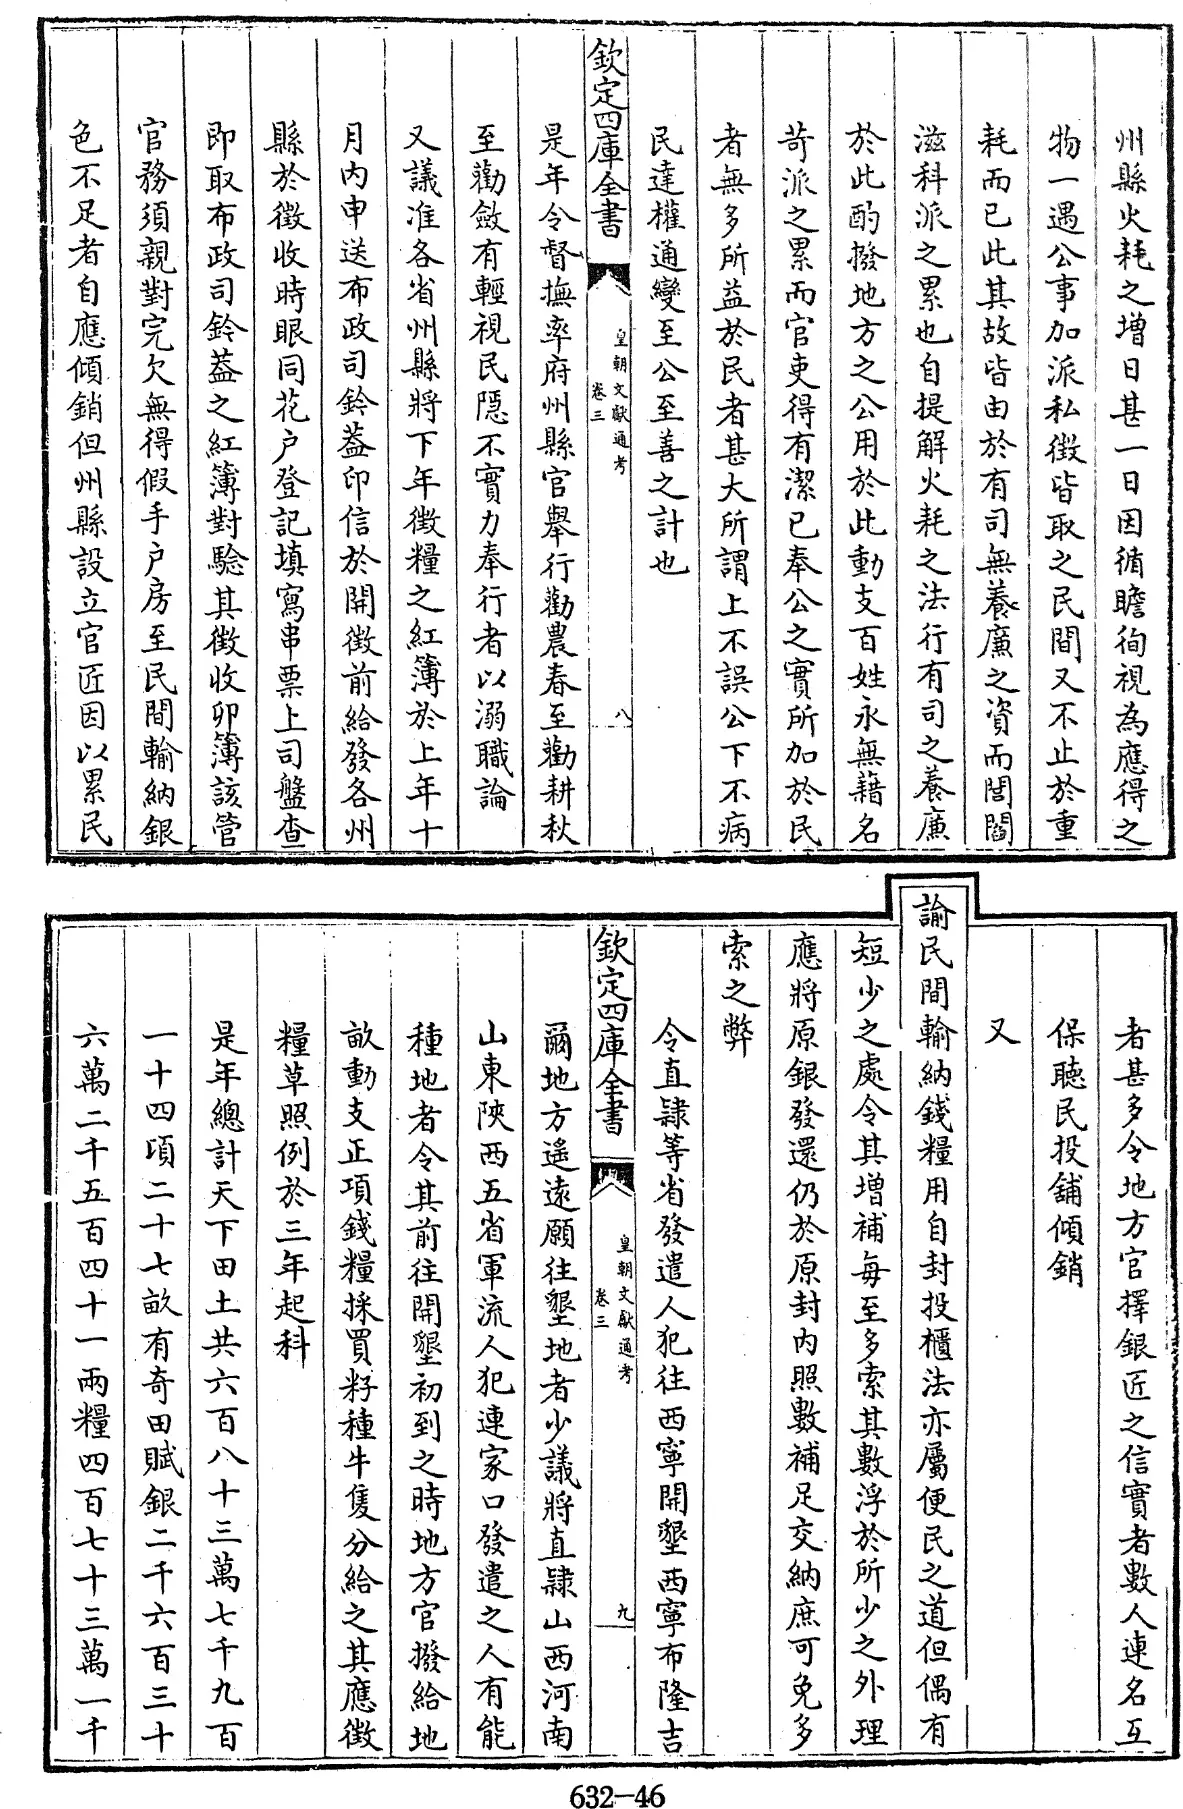 州縣火耗之增日甚一日因循瞻徇視為應得之
物一遇公事加派私徵皆取之民間又不止於重
耗而已此其故皆由於有司無養廉之資而閭閻
滋科派之累也自提解火耗之法行有司之養廉
於此酌撥地方之公用於此動支百姓永無藉名
苛派之累而官吏得有潔已奉公之實所加於民
者無多所益於民者甚大所謂上不誤公下不病
民達權通變至公至善之計也
欽定四庫全書
皇朝文獻通考
卷三
八
是年令督撫率府州縣官舉行勸農春至勸耕秋
至勸斂有輕視民隱不實力奉行者以溺職論
又議准各省州縣將下年徵糧之紅簿於上年十
月內申送布政司鈐蓋印信於開徵前給發各州
縣於徵收時眼同花户登記填寫串票上司盤查
即取布政司鈐蓋之紅簿對騐其徵收卯簿該管
官務須親對完欠無得假手户房至民間輸納銀
色不足者自應傾銷但州縣設立官匠因以累民
者甚多令地方官擇銀匠之信實者數人連名互
保聽民投舖傾銷
又
諭民間輸納錢糧用自封投櫃法亦屬便民之道但偶有
短少之處令其增補每至多索其數浮於所少之外理
應將原銀發還仍於原封內照數補足交納庶可免多
索之弊
令直隸等省發遣人犯往西寧開墾西寧布隆吉
欽定四庫全書
皇朝文獻通考
卷三
九
爾地方遙遠願往墾地者少議將直隸山西河南
山東陜西五省軍流人犯連家口發遣之人有能
種地者令其前往開墾初到之時地方官撥給地
畝動支正項錢糧採買籽種牛隻分給之其應徵
糧草照例於三年起科
是年總計天下田土共六百八十三萬七千九百
一十四頃二十七畝有奇田賦銀二千六百三十
六萬二千五百四十一兩糧四百七十三萬一千
632-46